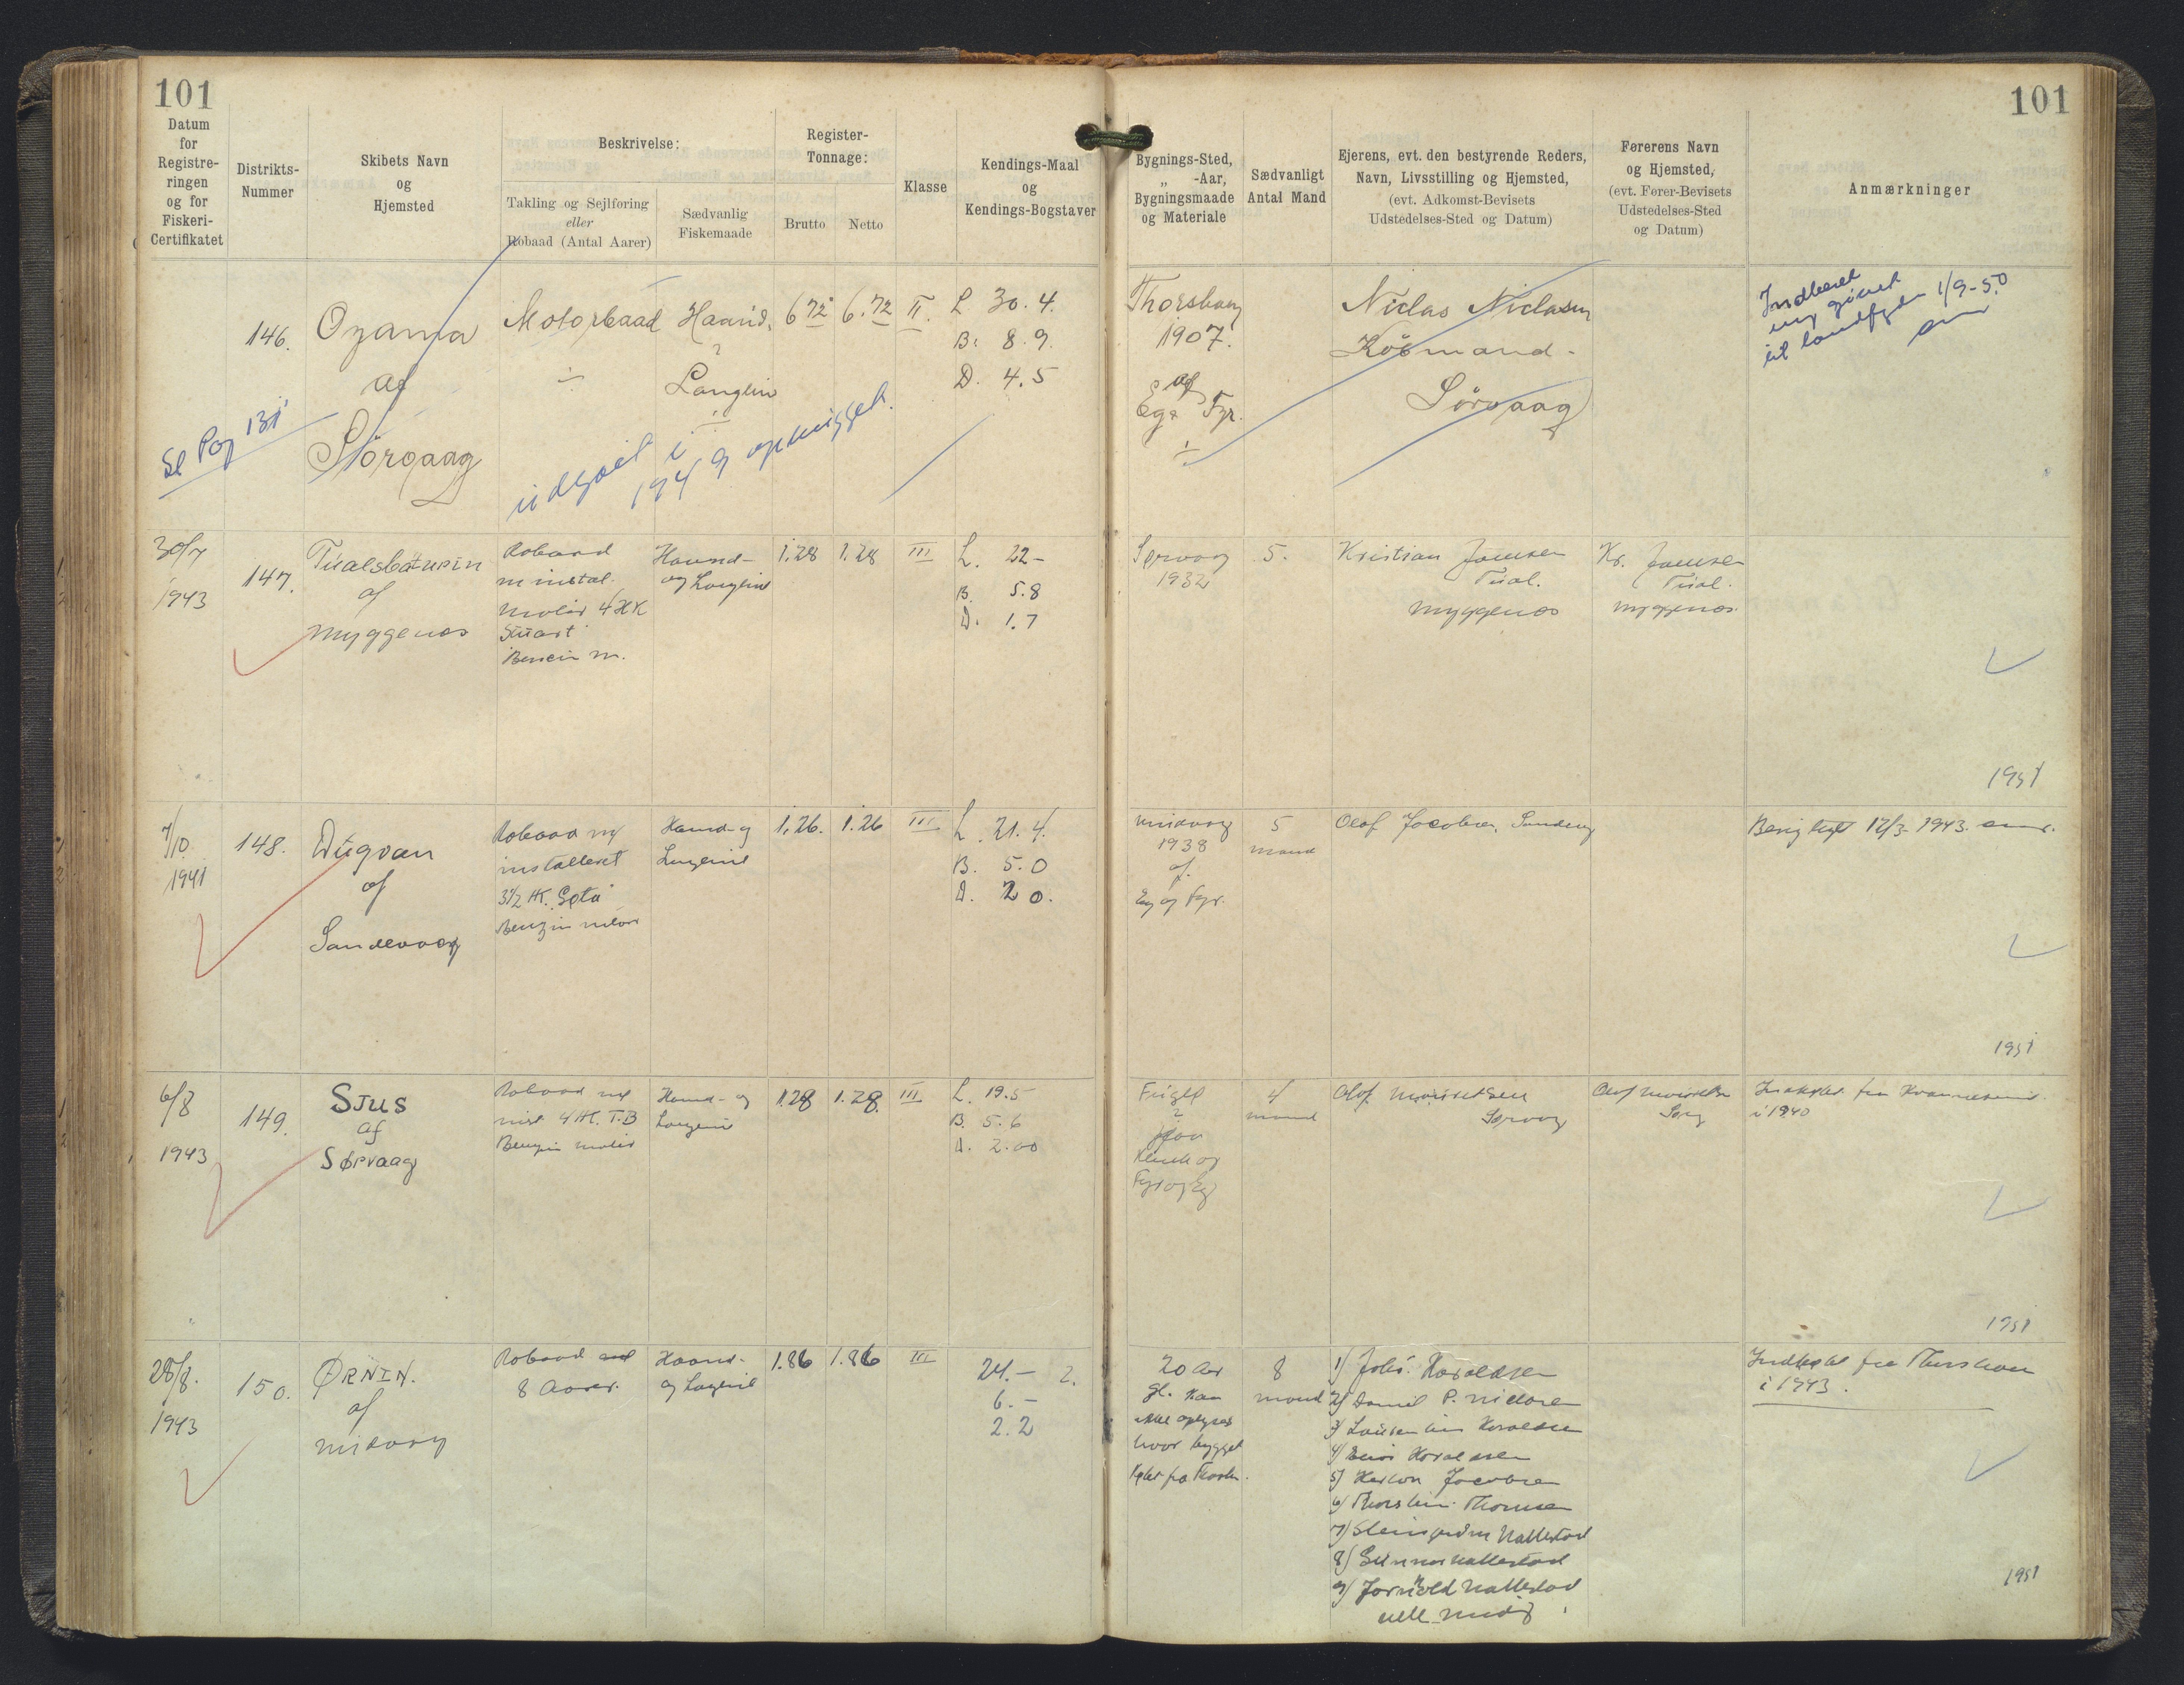 101
101
Datum
for
Registre-
ringen
og for
Fiskeri-
Certifikatet
Distrikts-
Nummer
Skibets Navn
og
Hjemsted
Beskrivelse:
Takling og Sejlføring
eller
Robaad (Antal Aarer)
Sædvanlig
Fiskemaade
Register-
Tonnage:
Brutto
Netto
Klasse
Kendings-Maal
og
Kendings-Bogstaver
Bygnings-Sted,
„ -Aar,
Bygningsmaade
og Materiale
Sædvanligt
Antal Mand
Ejerens, evt. den bestyrende Reders,
Navn, Livsstilling og Hjemsted,
(evt. Adkomst-Bevisets
Udstedelses-Sted og Datum)
Førerens Navn
og Hjemsted,
(evt. Fører-Bevisets
Udstedelses-Sted
og Datum)
Anmærkninger
146.
Ozama
af
Sörvaag
Se Pag 131
Motorbaad
÷
Haand.
Langlin
÷
udgaaet i
1949 ophugget.
6 72
6.72
II.
L 30.4.
B. 8.9.
D. 4.5
Thorshavn
1907.
af
Eg & Fyr.
÷
Niclas Niclasen
Købmand.
Sörvaag
til landfogden 1/9-50
30/7
1943
147.
Tualsbáturin
af
Myggenæs
Robaad
m instal.
Motor 4 HK
Stuart
Benzin m.
Haand-
og Langline
1.28
1.28
III
L. 22-
B. 5.8
D. 1.7
Sørvaag
1932
5.
Kristian Joensen
Tual.
Myggenæs
Kr. Joensen
Tual.
Myggenæs.
1951
7/10.
1941
148.
Dugvan
af
Sandevaag
Robaad m/
installeret
3½ HK. Gøta
Benzin motor
Haand- og
Langline
1.26.
1.26
III
L. 21.4.
B. 5.0
D. 2 0.
Midvaag
1938
af.
Eg og Fyr.
5
mand
Olaf Jacobsen, Sandevaag
Berigtiget 12/3-1943.
1951
6/8
1943
149.
SJUS
af
SØRVAAG
Robaad m/
inst 4 HK. T.B
Benzin motor
Haand- og
Langline
1.28
1.28.
III
L. 19.5
B. 5.6
D. 2.00
Fuglø
Klink og
Fyr og Eg
4
mand
Olaf Mouritsen
Sørvaag
Olaf Mouritsen
Sørv
Indkøbt fra Kvannesund
i 1940
1951
28/8.
1943
150.
ØRNIN.
af
Midvaag
Robaad med
8 Aarer.
Haand-
og Langline
1.86
1.86
III
24.- 2.
6.-
2.2
20 Aar
gl. Kan
ikke oplyses
hvor bygget
Købt fra Thorshn.
8
mand
1) Johs. Haraldsen
2) Daniel P. Niclasen
3) Laurentius Haraldsen
4) Elias Haraldsen
5) Hanson Jacobsen
6) Thorstein Thomsen
7) Steingrim Nattestad
8) Gunnar Nattestad
9) Jarnvold Nattestad
alle Midvg
Indkøbt fra Thorshavn
i 1943.
1951